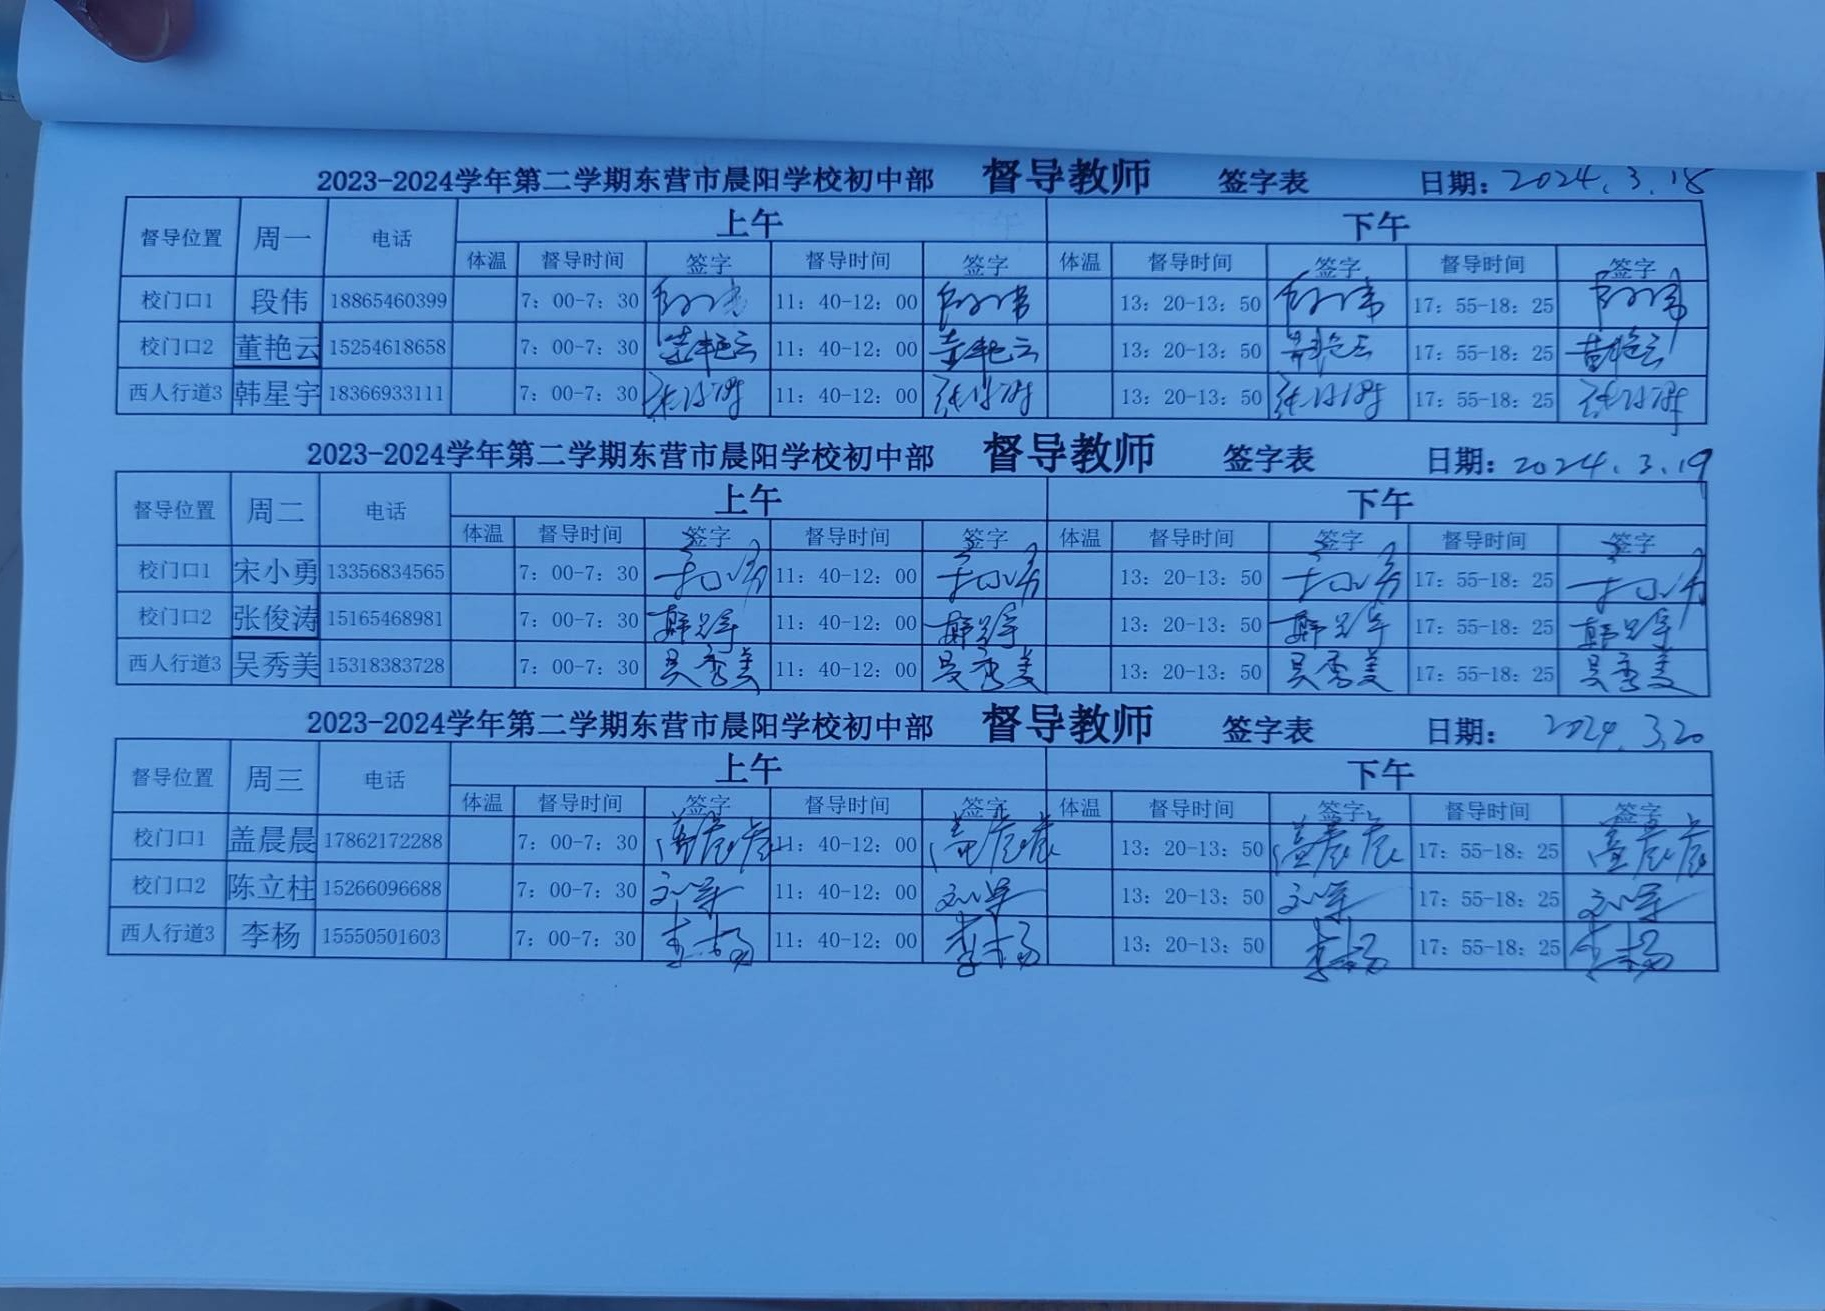 2023-2024学年第二学期东营市晨阳学校初中部 督导教师 签字表 日期：2024.3.18
督导位置 周一 电话 上午 下午
体温 督导时间 签字 督导时间 签字 体温 督导时间 签字 督导时间 签字
校门口1 段伟 18865460399 7：00-7：30 段伟 11：40-12：00 段伟 13：20-13：50 段伟 17：55-18：25 段伟
校门口2 董艳云 15254618658 7：00-7：30 董艳云 11：40-12：00 董艳云 13：20-13：50 董艳云 17：55-18：25 董艳云
西人行道3 韩星宇 18366933111 7：00-7：30 11：40-12：00 13：20-13：50 17：55-18：25
2023-2024学年第二学期东营市晨阳学校初中部 督导教师 签字表 日期：2024.3.19
督导位置 周二 电话 上午 下午
体温 督导时间 签字 督导时间 签字 体温 督导时间 签字 督导时间 签字
校门口1 宋小勇 13356834565 7：00-7：30 宋小勇 11：40-12：00 宋小勇 13：20-13：50 宋小勇 17：55-18：25 宋小勇
校门口2 张俊涛 15165468981 7：00-7：30 韩星宇 11：40-12：00 韩星宇 13：20-13：50 韩星宇 17：55-18：25 韩星宇
西人行道3 吴秀美 15318383728 7：00-7：30 吴秀美 11：40-12：00 吴秀美 13：20-13：50 吴秀美 17：55-18：25 吴秀美
2023-2024学年第二学期东营市晨阳学校初中部 督导教师 签字表 日期：2024.3.20
督导位置 周三 电话 上午 下午
体温 督导时间 签字 督导时间 签字 体温 督导时间 签字 督导时间 签字
校门口1 盖晨晨 17862172288 7：00-7：30 盖晨晨 11：40-12：00 盖晨晨 13：20-13：50 盖晨晨 17：55-18：25 盖晨晨
校门口2 陈立柱 15266096688 7：00-7：30 11：40-12：00 13：20-13：50 17：55-18：25
西人行道3 李杨 15550501603 7：00-7：30 李杨 11：40-12：00 李杨 13：20-13：50 李杨 17：55-18：25 李杨